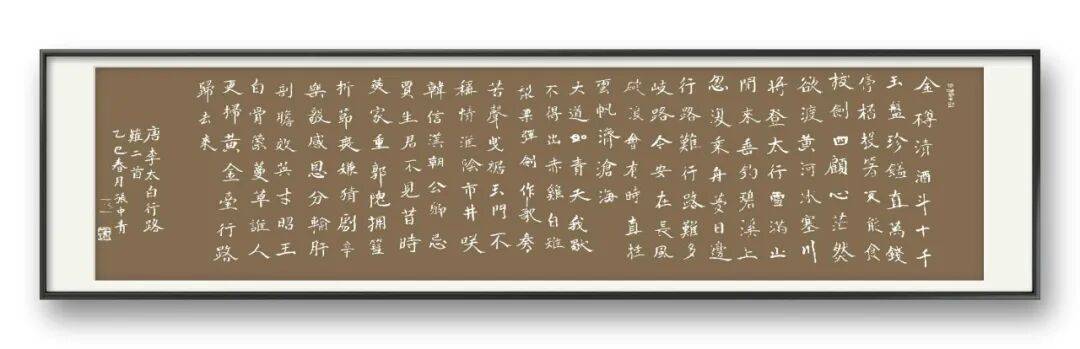 金樽清酒斗十千
玉盤珍饈直萬錢
停杯投箸不能食
拔劍四顧心茫然
欲渡黃河冰塞川
將登太行雪滿山
閒來垂釣碧溪上
忽復乘舟夢日邊
行路難行路難多
岐路今安在長風
破浪會有時直挂
雲帆濟滄海
大道如青天我獨
不得出赤雞白雉
梨栗彈劍作歌奏
苦聲曳裾王門不
稱情淮陰市井咲
韓信漢朝公卿忌
賈生君不見昔時
燕家重郭隗擁篲
折節無嫌猜劇辛
樂毅感恩分輸肝
剖膽效英才昭王
白骨縈蔓草誰人
更掃黃金臺行路
歸去來
唐李太白行路
難二首
乙巳春月張中青